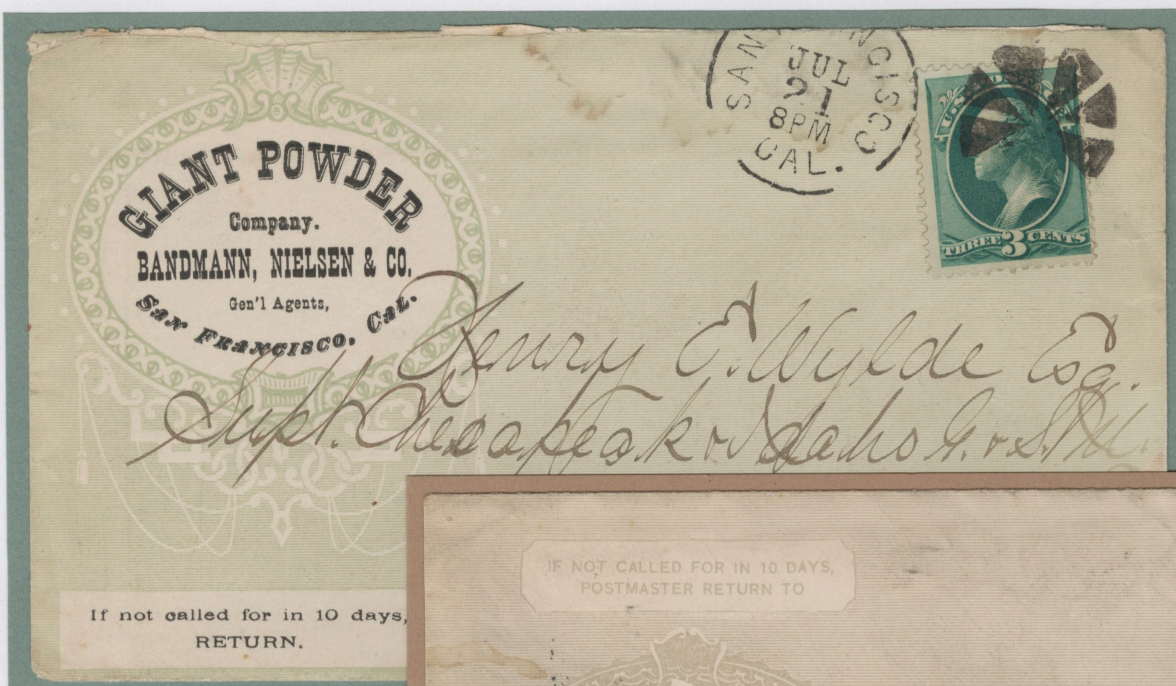 GIANT POWDER
Company.
BANDMANN, NIELSEN & CO.
Gen'l Agents,
SAN FRANCISCO, CAL.
SAN FRANCISCO
JUL
21
8PM
CAL.
U.S. POSTAGE
THREE 3 CENTS
Henry E. Wylde Esq.
Supt. Chesapeak & Idaho G. & S.
If not called for in 10 days,
RETURN.
IF NOT CALLED FOR IN 10 DAYS,
POSTMASTER RETURN TO